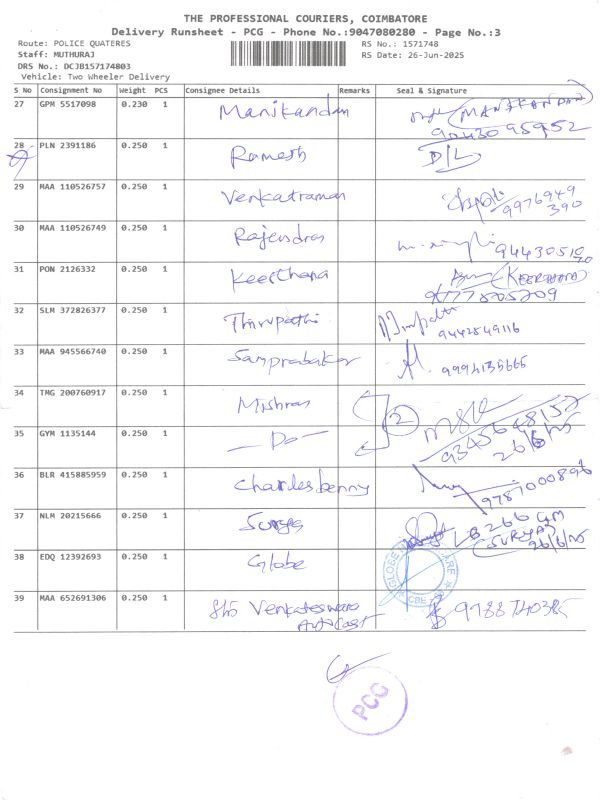 THE PROFESSIONAL COURIERS, COIMBATORE
Delivery Runsheet - PCG - Phone No.:9047080280 - Page No.:3
Route: POLICE QUATERES
RS No.: 1571748
Staff: MUTHURAJ
RS Date: 26-Jun-2025
DRS No.: DCJB157174803
Vehicle: Two Wheeler Delivery
S No Consignment No Weight PCS Consignee Details Remarks Seal & Signature
27 GPM 5517098 0.230 1 Manikandan (MANIKANDAN)
9043095952
28 PLN 2391186 0.250 1 Ramesh D/L
29 MAA 110526757 0.250 1 Venkatraman 9976949
390
30 MAA 110526749 0.250 1 Rajendran 9443051070
31 PON 2126332 0.250 1 Keerthana (KEERTHANA)
32 SLM 372826377 0.250 1 Thirupathi 9442549116
33 MAA 945566740 0.250 1 Samprabakar 9994135665
34 TMG 200760917 0.250 1 Mishras 2
9345648152
35 GYM 1135144 0.250 1 — Do — 26/6/25
36 BLR 415885959 0.250 1 Charles benny 9787000896
37 NLM 20215666 0.250 1 Surya LB 266 GM
(SURYA)
26/6/25
38 EDQ 12392693 0.250 1 Globe
CBE
39 MAA 652691306 0.250 1 Sri Venkateswara 9788740385
Autocast
PCG